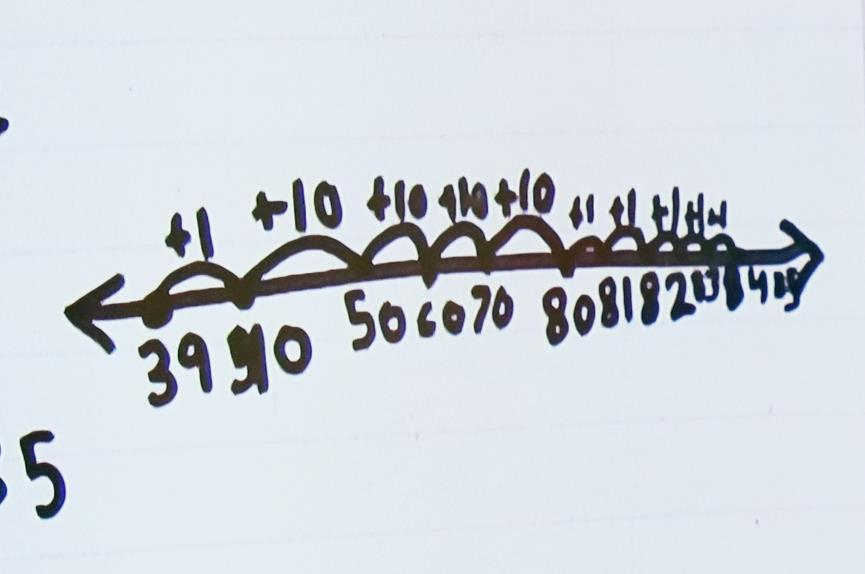 +1 +10 +10 +10 +10 +1 +1 +1 +1 +1
39 40 50 60 70 80 81 82 83 84 85
5